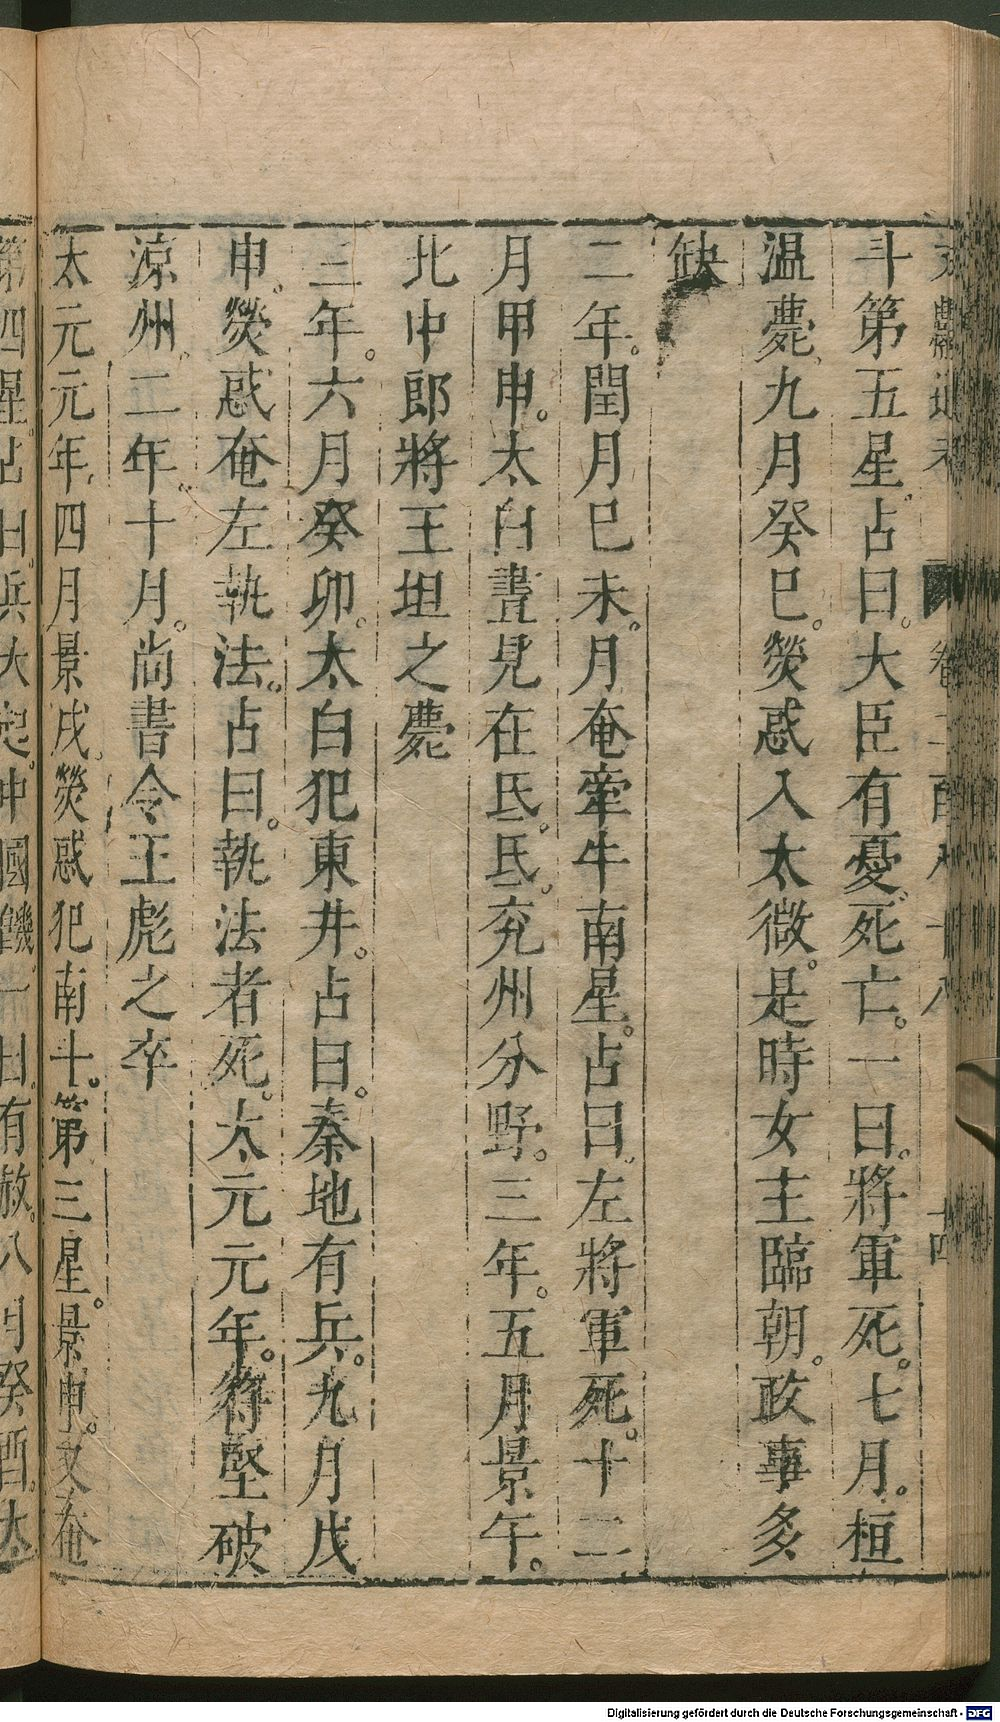 卷二百八十八 十四
斗第五星占曰。大臣有憂。死亡。一曰。將軍死。七月。桓
温薨。九月癸巳。熒惑入太微。是時女主臨朝。政事多
缺
二年。閏月巳未。月奄牽牛南星。占曰。左將軍死。十二
月甲申。太白晝見在氐。氐。兖州分野。三年。五月景午。
北中郎將王坦之薨
三年。六月癸卯。太白犯東井。占曰。秦地有兵。九月戊
申。熒惑奄左執法。占曰。執法者死。太元元年。符堅破
涼州。二年。十月。尚書令王彪之卒
太元元年。四月景戌。熒惑犯南斗。第三星。景申。又奄
第四星。占曰。兵大起。中國饑。一曰。有赦。八月癸酉。太
Digitalisierung gefördert durch die Deutsche Forschungsgemeinschaft - DFG